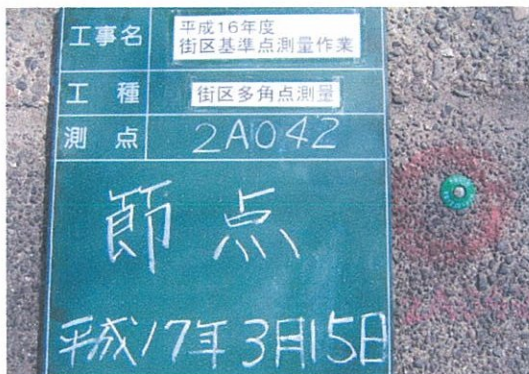 工事名 平成16年度
街区基準点測量作業
工種 街区多角点測量
測点 2A042
節点
平成17年3月15日